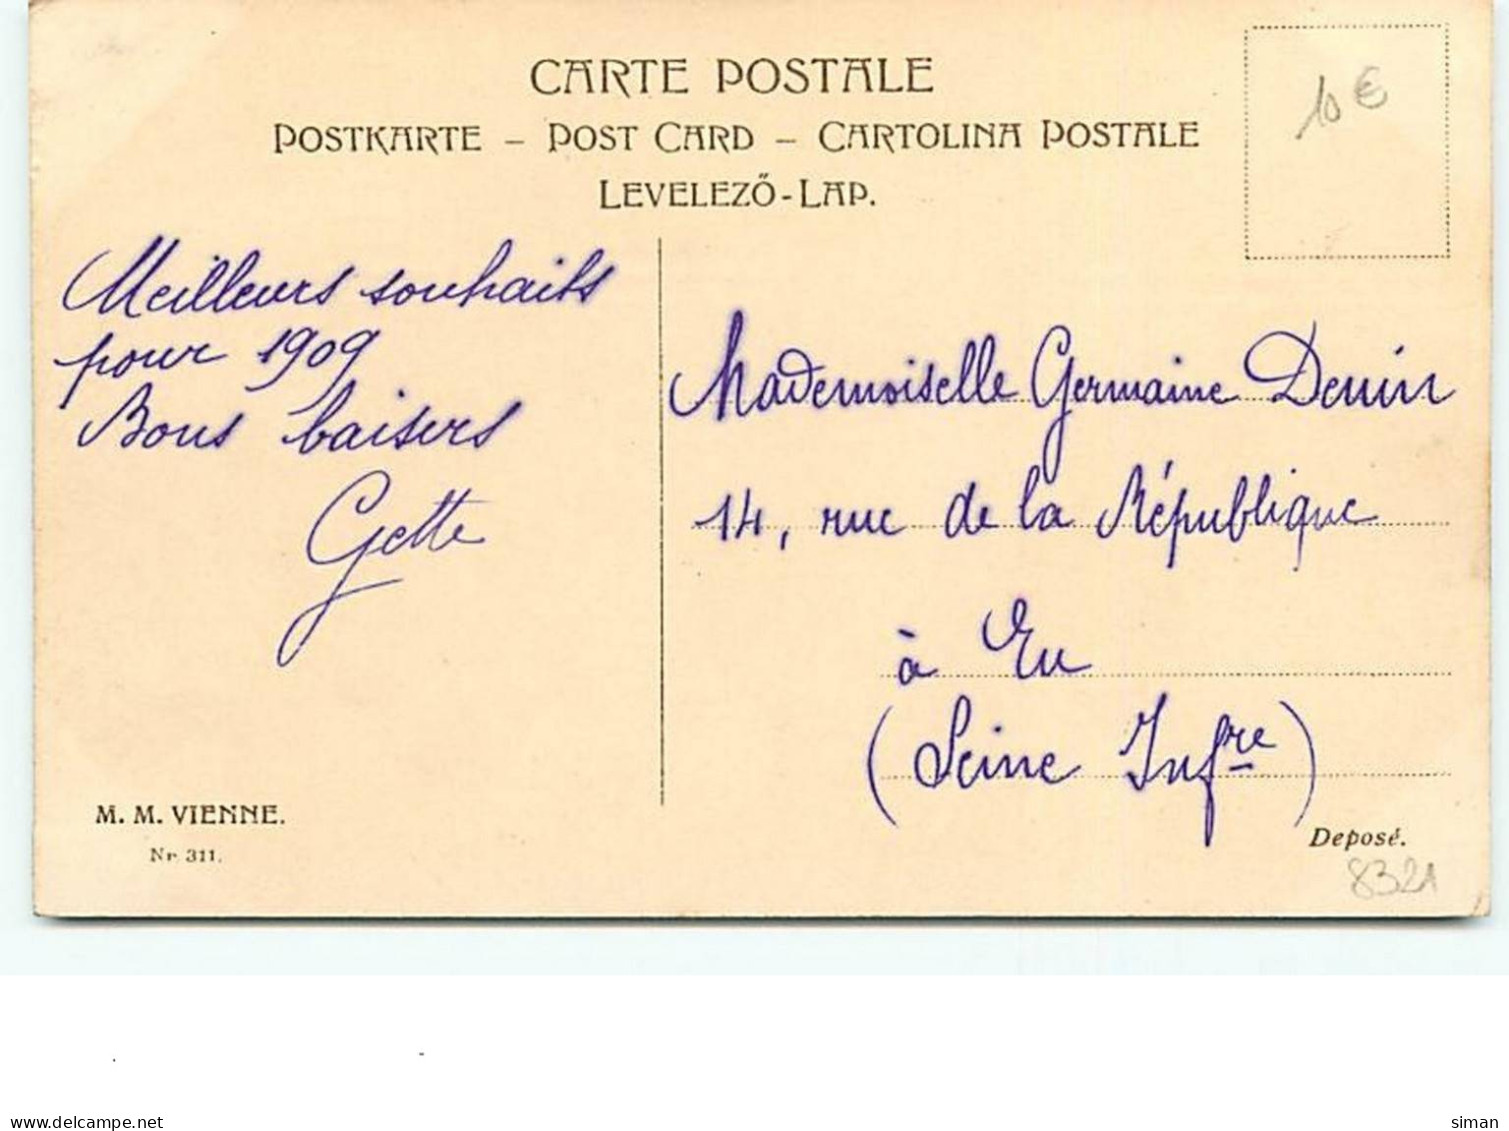 CARTE POSTALE
POSTKARTE – POST CARD – CARTOLINA POSTALE
LEVELEZŐ-LAP.
10 €
Meilleurs souhaits
pour 1909
Bons baisers
Gette
Mademoiselle Germaine Denin
14, rue de la République
à Eu
(Seine Infre)
M. M. VIENNE.
Nr. 311.
Deposé.
8321
www.delcampe.net
siman